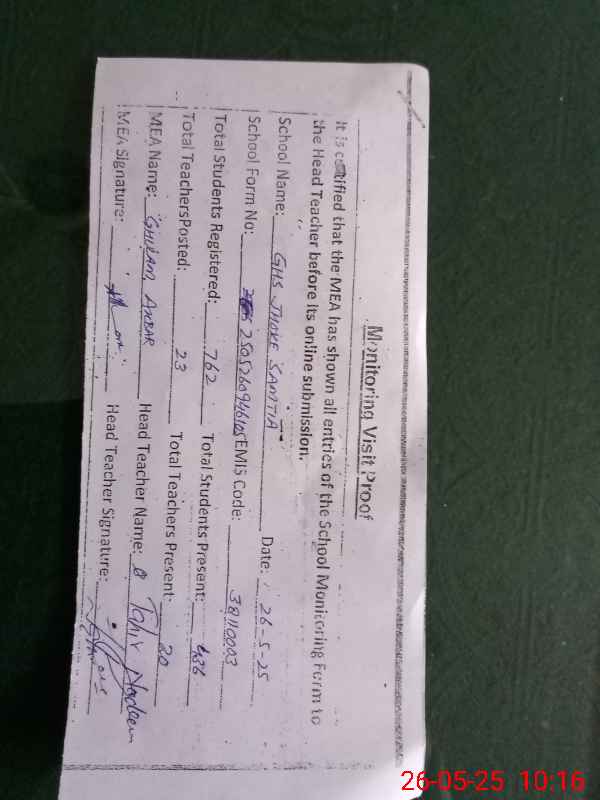 Monitoring Visit Proof
It is certified that the MEA has shown all entries of the School Monitoring Form to
the Head Teacher before its online submission.
School Name: GHS JHOKE SAMTIA Date: 26-5-25
School Form No: 250526094610 EMIS Code: 38110003
Total Students Registered: 762 Total Students Present: 636
Total TeachersPosted: 23 Total Teachers Present: 20
MEA Name: GHULAM AKBAR Head Teacher Name: Tahir Nadeem
MEA Signature: Head Teacher Signature:
26-05-25 10:16